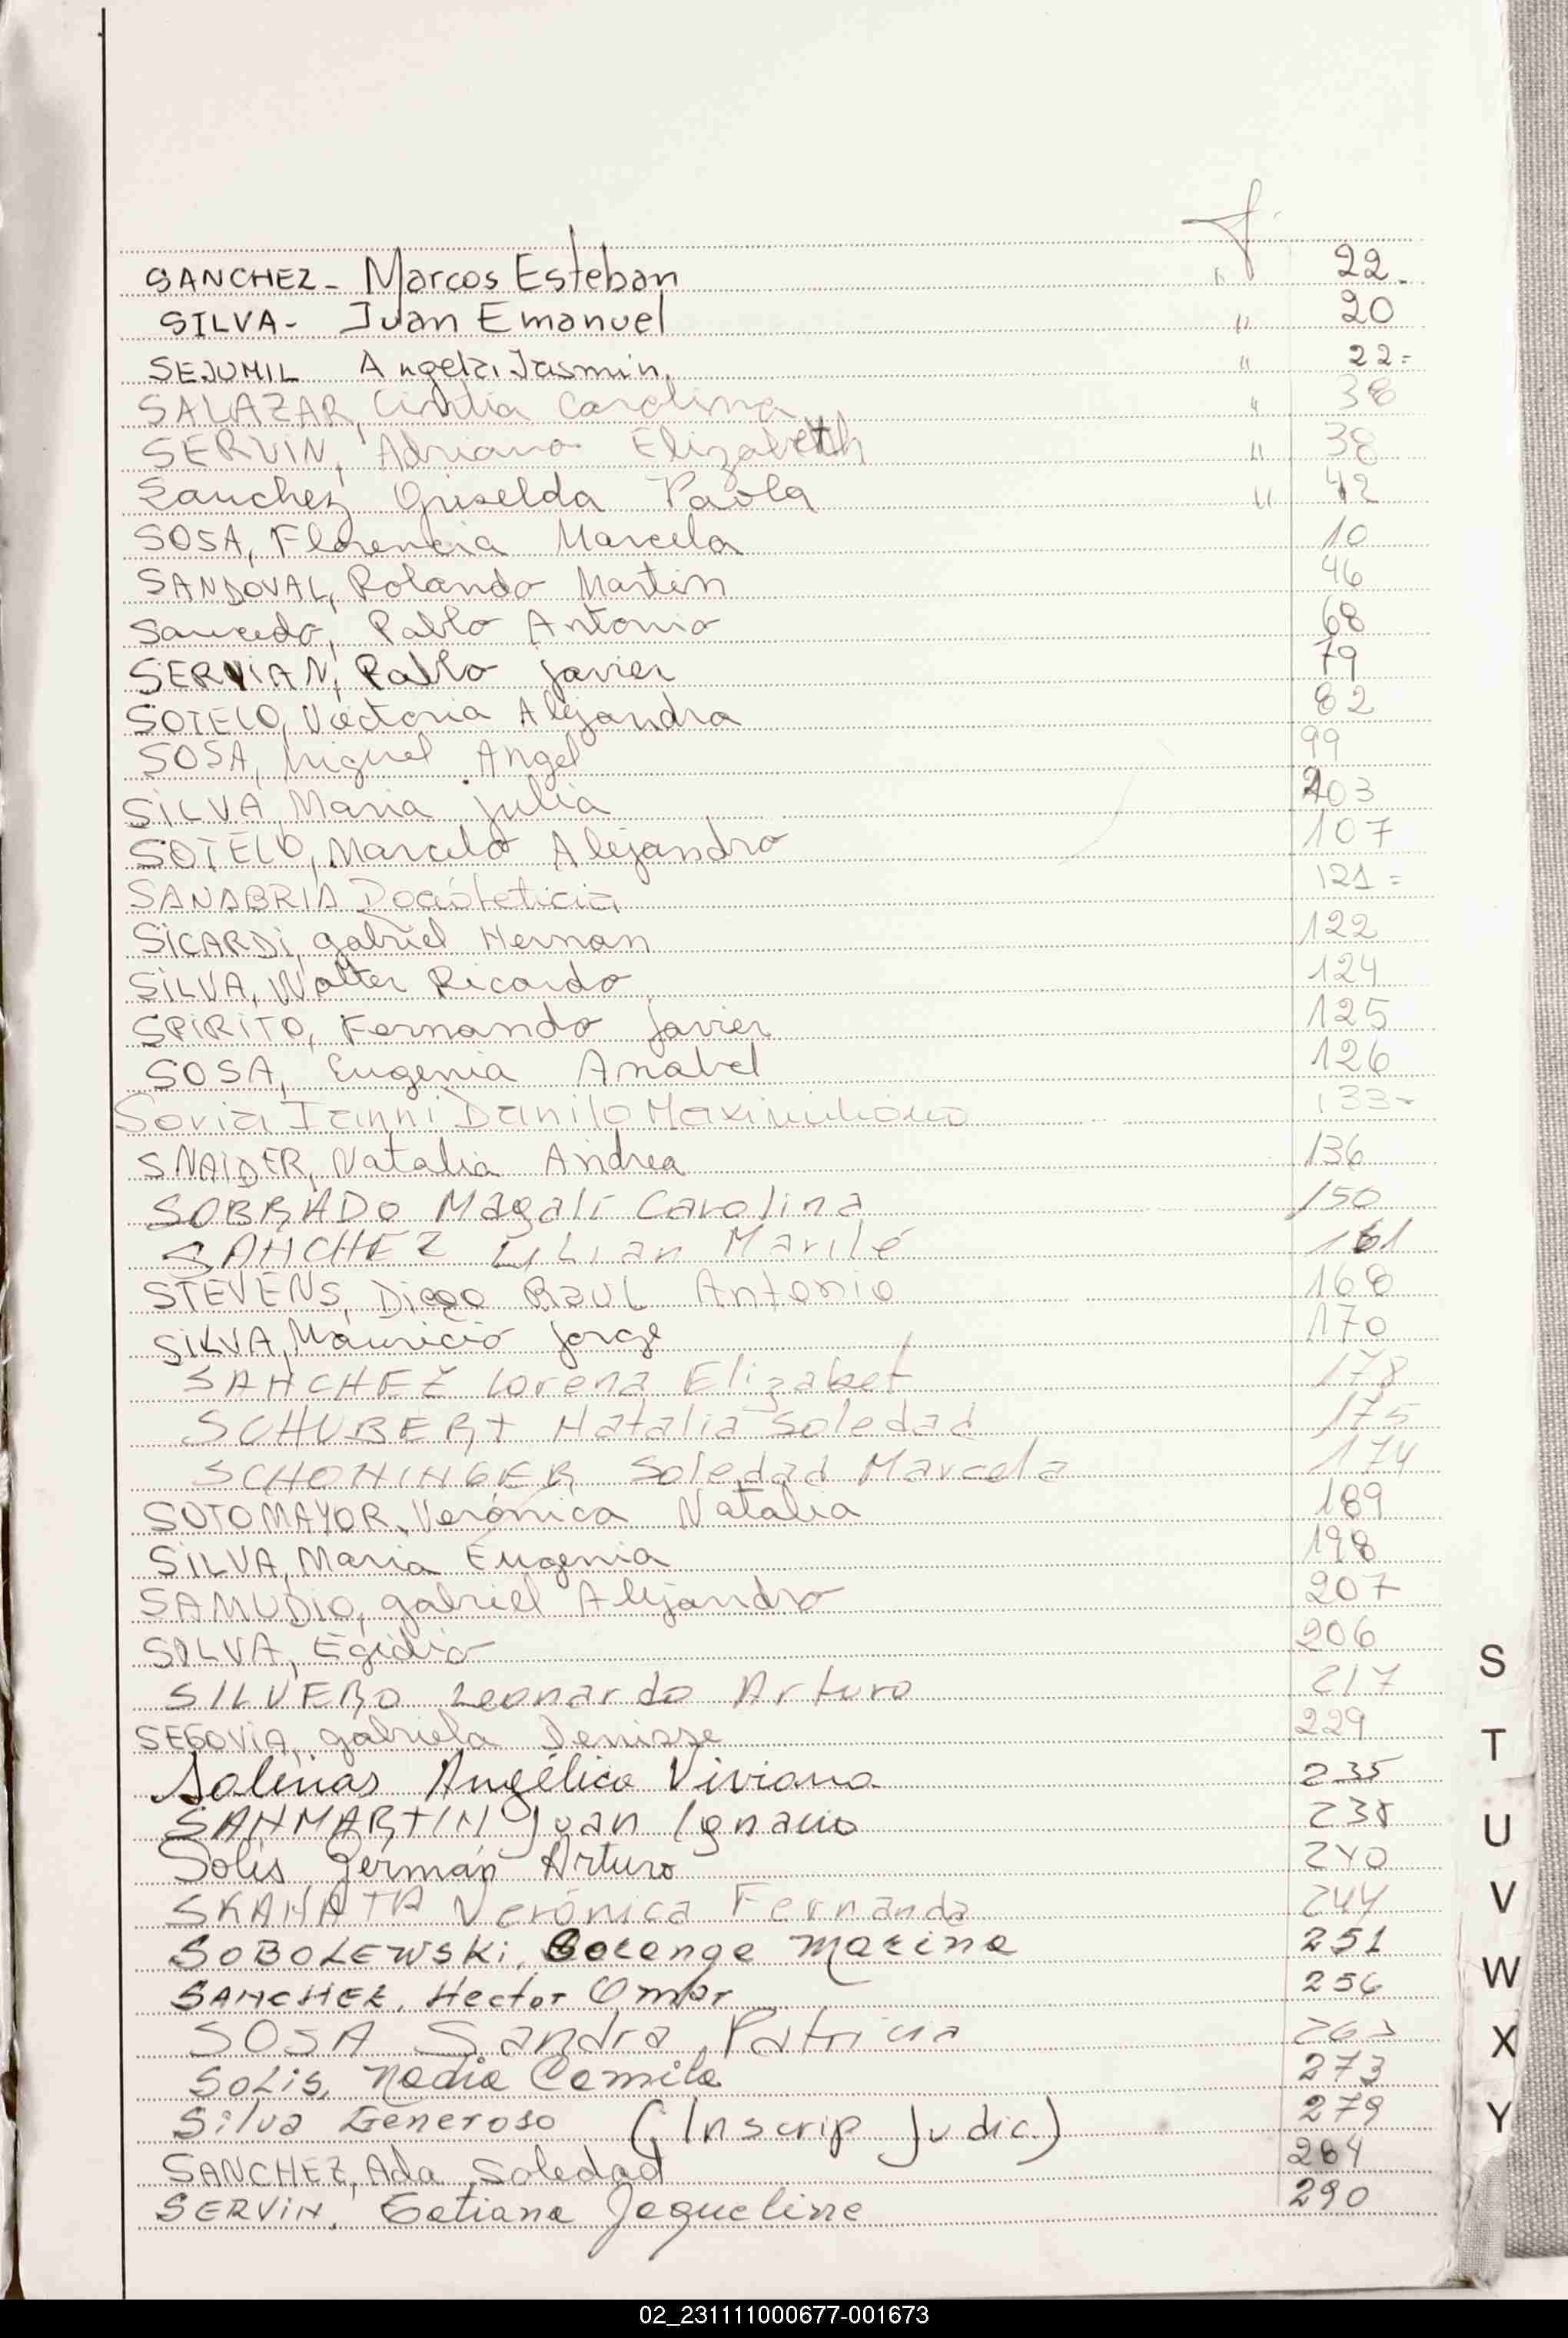 f.
SANCHEZ - Marcos Esteban " 22.
SILVA - Juan Emanuel " 20
SEJUMIL Angela Jasmin. " 22=
SALAZAR, Cintia Carolina " 38
SERVIN, Adriana Elizabeth " 38
Sanchez Griselda Paola " 42
SOSA, Florencia Marcela 10
SANDOVAL, Rolando Martin 46
Saucedo, Pablo Antonio 68
SERVIAN, Pablo Javier 79
SOTELO, Victoria Alejandra 82
SOSA, Miguel Angel 99
SILVA, Maria Julia 103
SOTELO, Marcelo Alejandro 107
SANABRIA Leticia 121=
SICARDI, Gabriel Hernan 122
SILVA, Walter Ricardo 124
SPIRITO, Fernando Javier 125
SOSA, Eugenia Anabel 126
Soria Ianni Danilo Maximiliano 133-
SNAIDER, Natalia Andrea 136
SOBRADO Magalí Carolina 150
SANCHEZ Lilian Marilé 161
STEVENS, Diego Raul Antonio 168
SILVA, Mauricio Jorge 170
SANCHEZ Lorena Elizabet 178
SCHUBERT Natalia Soledad 175
SCHONINGER Soledad Marcela 174
SOTOMAYOR, Verónica Natalia 189
SILVA, Maria Eugenia 198
SAMUDIO, Gabriel Alejandro 207
SILVA, Egidio 206
SILVERO Leonardo Arturo 217
SEGOVIA, Gabriela Denisse 229
Salinas Angélica Viviana 235
SANMARTIN Juan Ignacio 238
Solis Germán Arturo 240
SKANATA Verónica Fernanda 244
SOBOLEWSKi, Solange Marina 251
SANCHEZ, Hector Omar 256
SOSA Sandra Patricia
SOLis, Nadia Camila 273
Silva Generoso (Inscrip Judic.) 279
SANCHEZ, Ada Soledad 284
SERVIN, Tatiana Jaqueline 290
S
T
U
V
W
X
Y
02_231111000677-001673